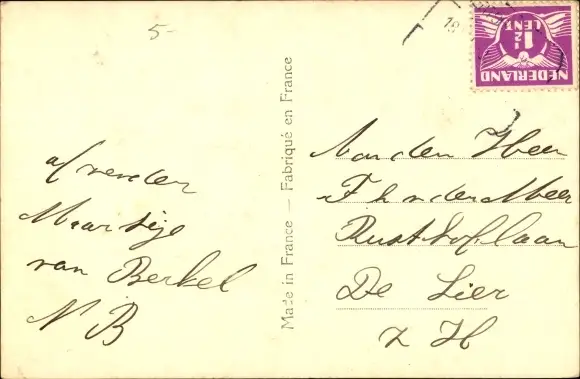 5-
afzender
Maartje
van Berkel
N B
Made in France — Fabriqué en France
NEDERLAND
1½
CENT
Aan den Heer
F h v der Meer
Rusthoflaan
De Lier
Z H